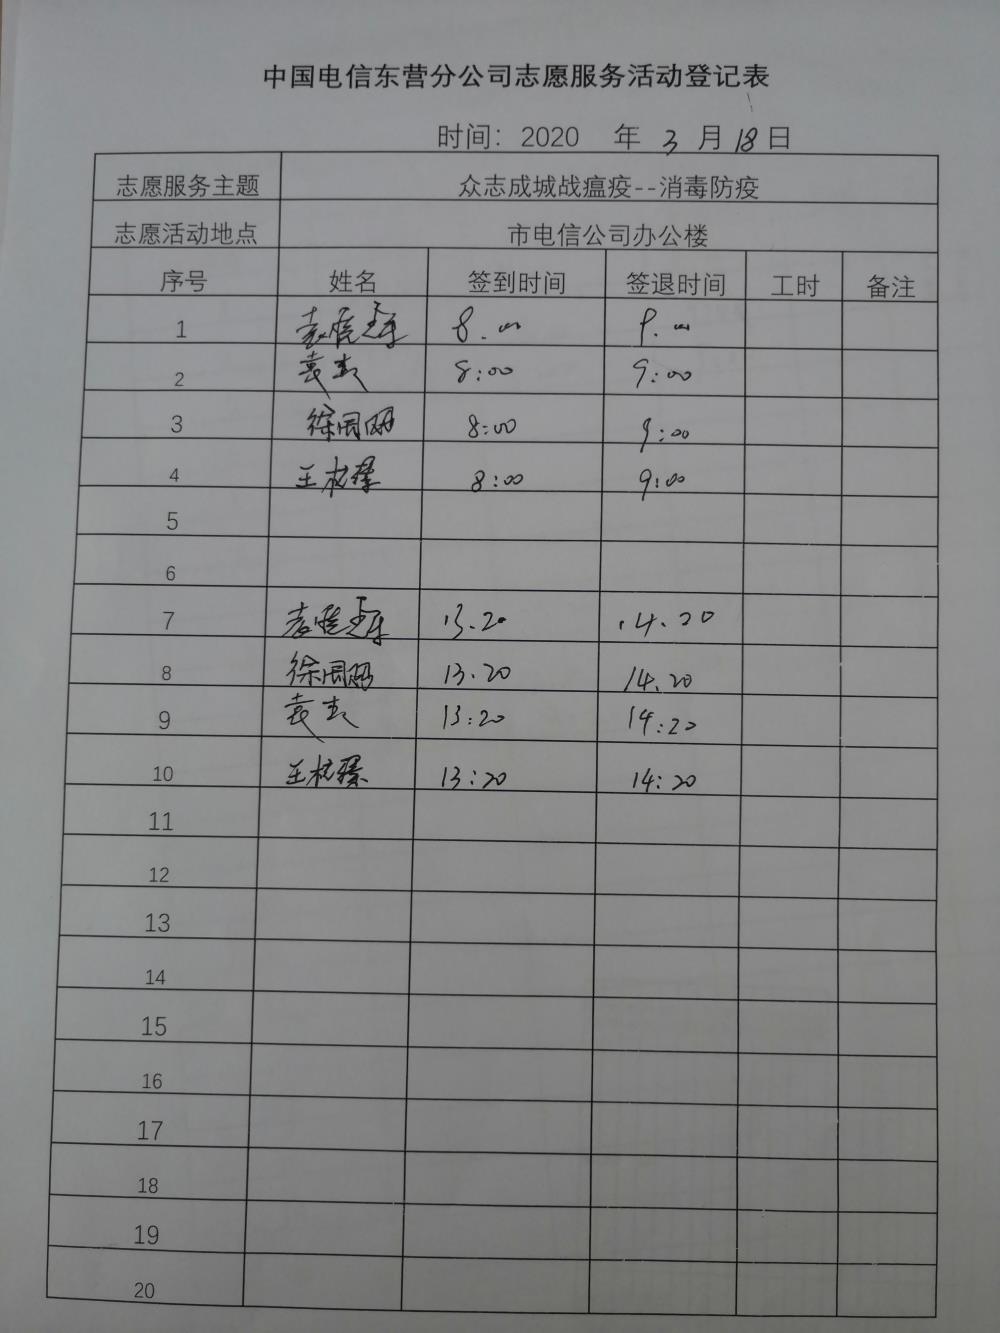 中国电信东营分公司志愿服务活动登记表
时间：2020 年 3 月 18 日
志愿服务主题 众志成城战瘟疫--消毒防疫
志愿活动地点 市电信公司办公楼
序号 姓名 签到时间 签退时间 工时 备注
1 8.00 9.00
2 8:00 9:00
3 徐同朋 8:00 9:00
4 王 8:00 9:00
5
6
7 13.20 14.20
8 徐同朋 13.20 14.20
9 13:20 14:20
10 王 13:20 14:20
11
12
13
14
15
16
17
18
19
20